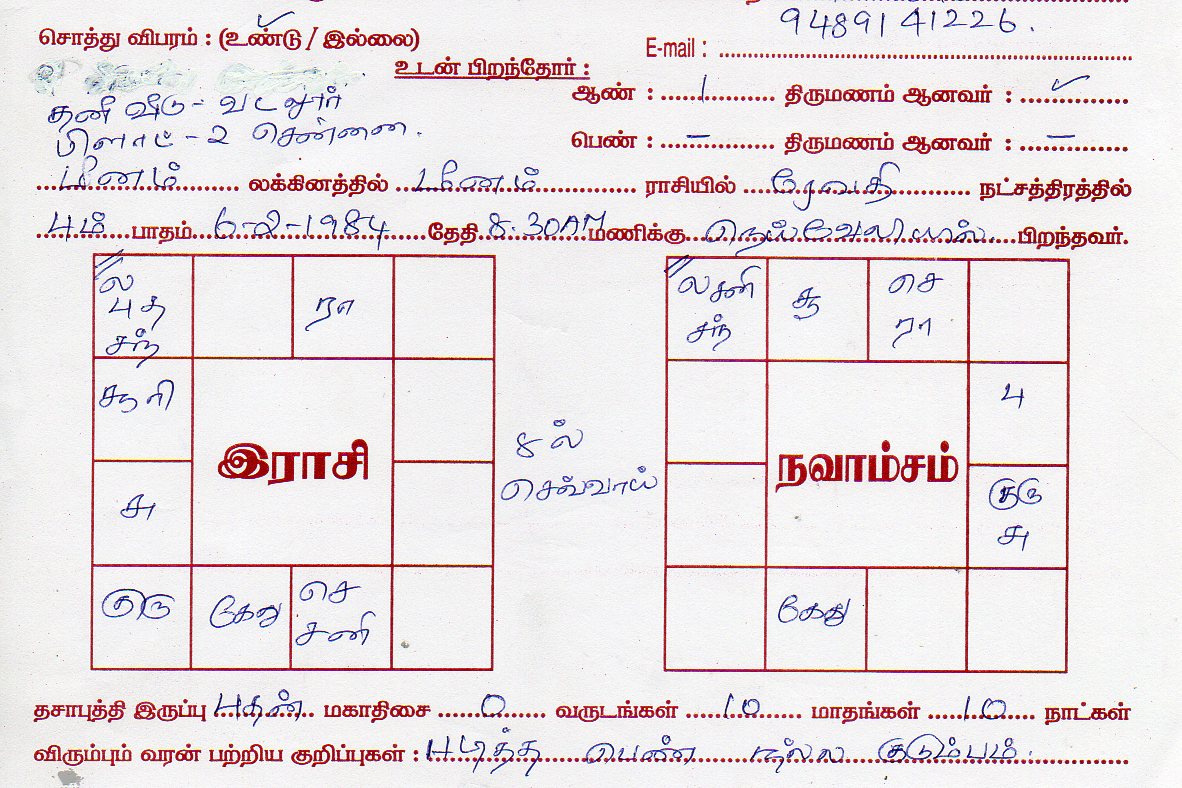 9489141226.
சொத்து விபரம் : (உண்டு / இல்லை)
E-mail :
உடன் பிறந்தோர் :
ஆண் : 1 திருமணம் ஆனவர் : ✓
தனி வீடு - வடலூர்
பிளாட் - 2 சென்னை.
பெண் : – திருமணம் ஆனவர் : –
மீனம் லக்கினத்தில் மீனம் ராசியில் ரேவதி நட்சத்திரத்தில்
4ம் பாதம் 6-2-1984 தேதி 8.30AM மணிக்கு நெய்வேலியில் பிறந்தவர்.
ல
புத
சந்
ரா
சூரி
இராசி
சு
குரு
கேது
செ
சனி
8 ல்
செவ்வாய்
ல சனி
சந்
சூ
செ
ரா
பு
நவாம்சம்
குரு
சு
கேது
தசாபுத்தி இருப்பு புதன் மகாதிசை 0 வருடங்கள் 10 மாதங்கள் 10 நாட்கள்
விரும்பும் வரன் பற்றிய குறிப்புகள் : படித்த பெண் நல்ல குடும்பம்.